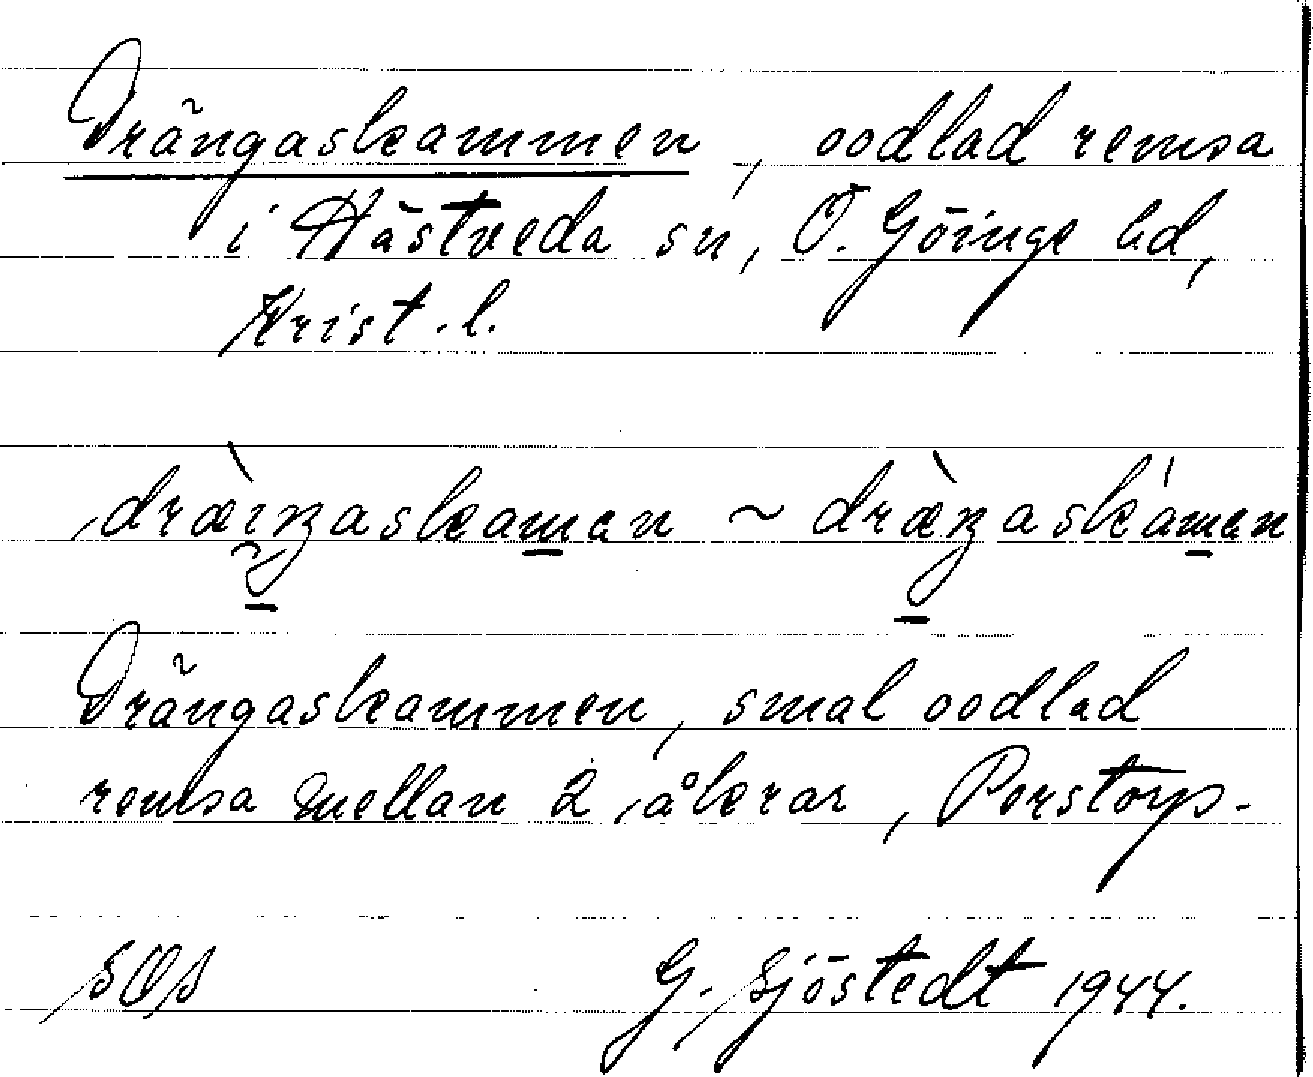 Drängaskammen, oodlad remsa
i Hästveda sn, Ö. Göinge hd,
Krist. l.
Drängaskammen, smal oodlad
remsa mellan 2 åkrar, Perstorp.
SOS
G. Sjöstedt 1944.